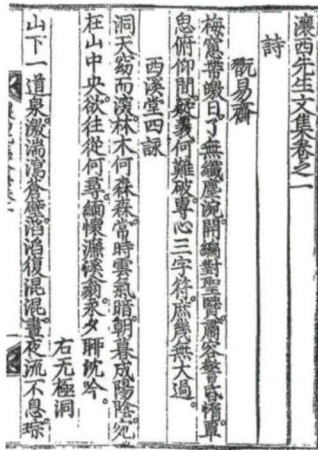 瀼西先生文集卷之一
詩
翫易齋
梅窓帶皦日了無纖塵涴。開編對聖賢肅容警昏惰。單
思俯仰間疑義何難破。專心三字符庶幾無大過。
西溪堂四詠
洞天窈而深。林木何森森。常時雲氣暗朝暮成陽陰。宛
在山中央。欲往從何尋。緬懷濂溪翁永夕聊沈吟。
右无極洞
山下一道泉。激湍瀉蒼壁。滔滔復混混。晝夜流不息。琮